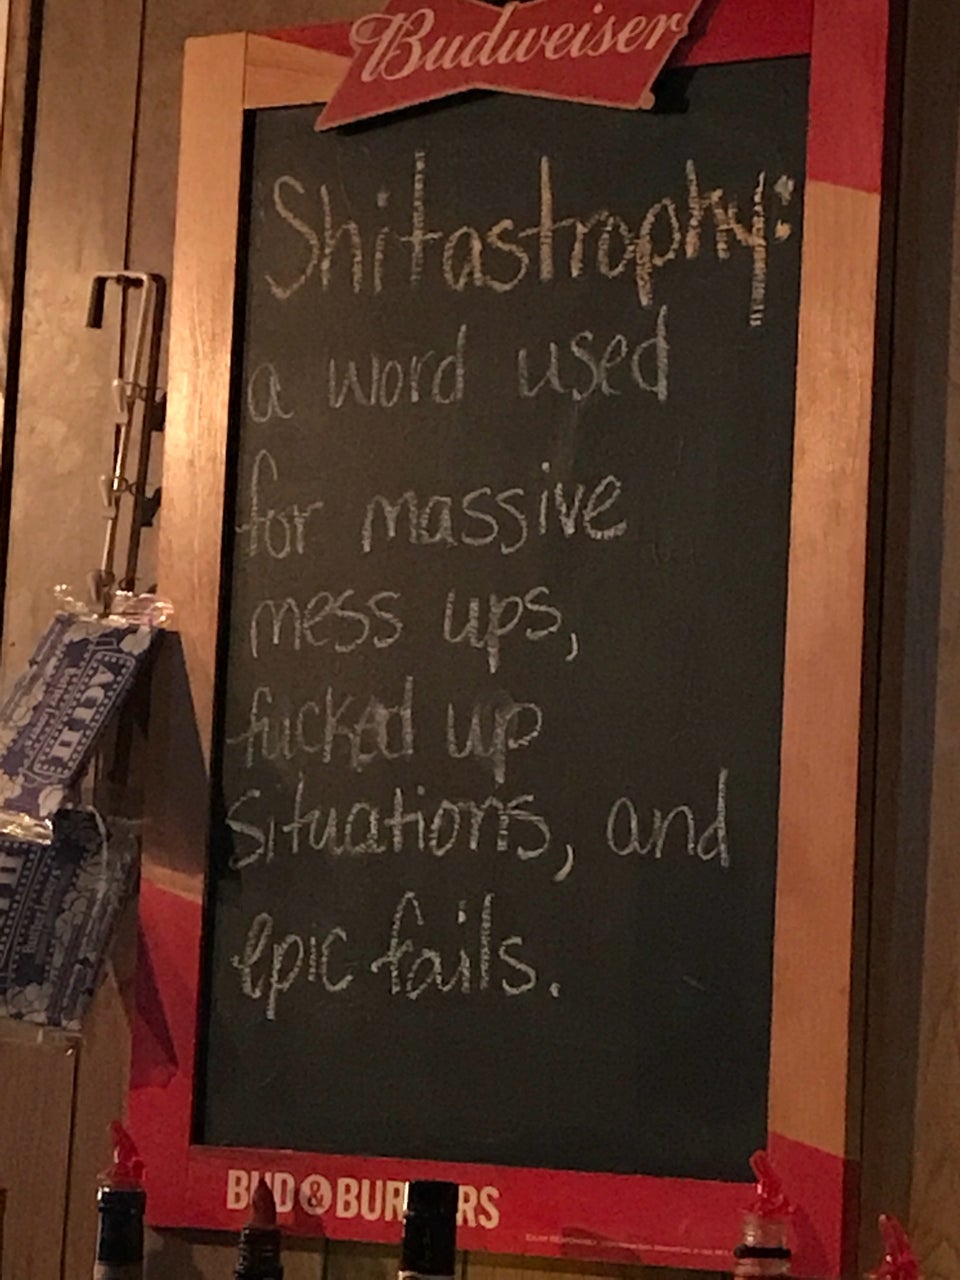 Budweiser
Shitastrophy:
a word used
for massive
mess ups,
fucked up
situations, and
epic fails.
BUD & BURGERS
ACT II